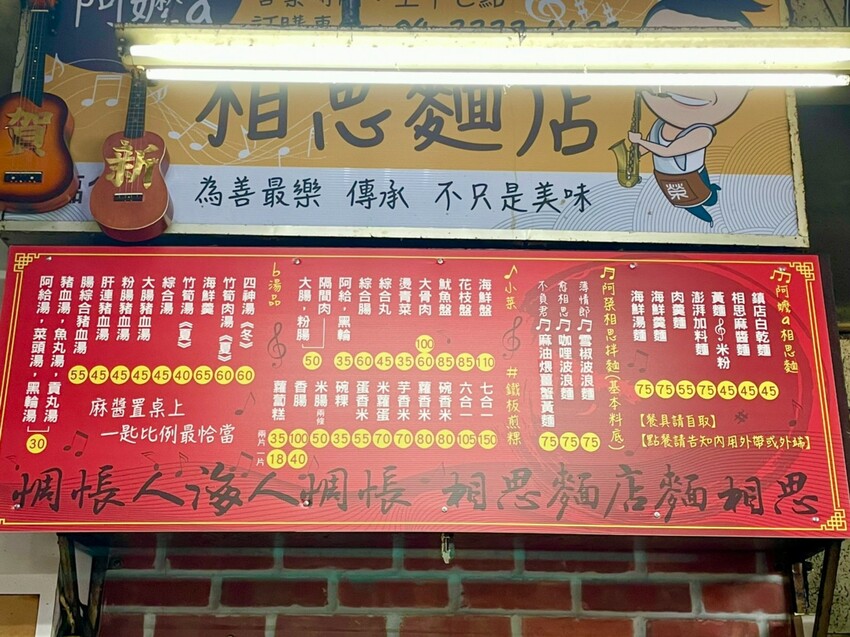 阿嬤a
相思麵店
賀
新
榮
為善最樂 傳承 不只是美味
阿嬤a相思麵
鎮店白乾麵 45
相思麻醬麵 45
黃麵 米粉 45
澎湃加料麵 75
肉羹麵 55
海鮮羹麵 75
海鮮湯麵 75
【餐具請自取】
【點餐請告知內用外帶或外燴】
相思拌麵(基本料底)
薄情郎 雪椒波浪麵 75
愈相思 咖哩波浪麵 75
不負君 麻油煨薑蟹黃麵 75
小菜 # 鐵板煎粿
海鮮盤 110
花枝盤 85
魷魚盤 85
大骨肉 100 60
燙青菜 40
綜合丸 45
綜合腸 60
阿給,黑輪 35
隔間肉
大腸,粉腸 50
七合一 150
六合一 105
碗香米 80
蘿香米 80
芋香米 70
米蘿蛋 70
蛋香米 55
碗粿 35
米腸 兩條 50
香腸 100 40
蘿蔔糕 兩片 35 一片 18
b湯品
四神湯《冬》 60
竹筍肉湯《夏》 60
海鮮羹 65
竹筍湯《夏》 40
綜合湯 45
大腸豬血湯 45
粉腸豬血湯 45
肝連豬血湯 45
腸綜合豬血湯 55
豬血湯,魚丸湯,貢丸湯
阿給湯,菜頭湯,黑輪湯 30
麻醬置桌上
一匙比例最恰當
惆悵人海人惆悵·相思麵店麵相思